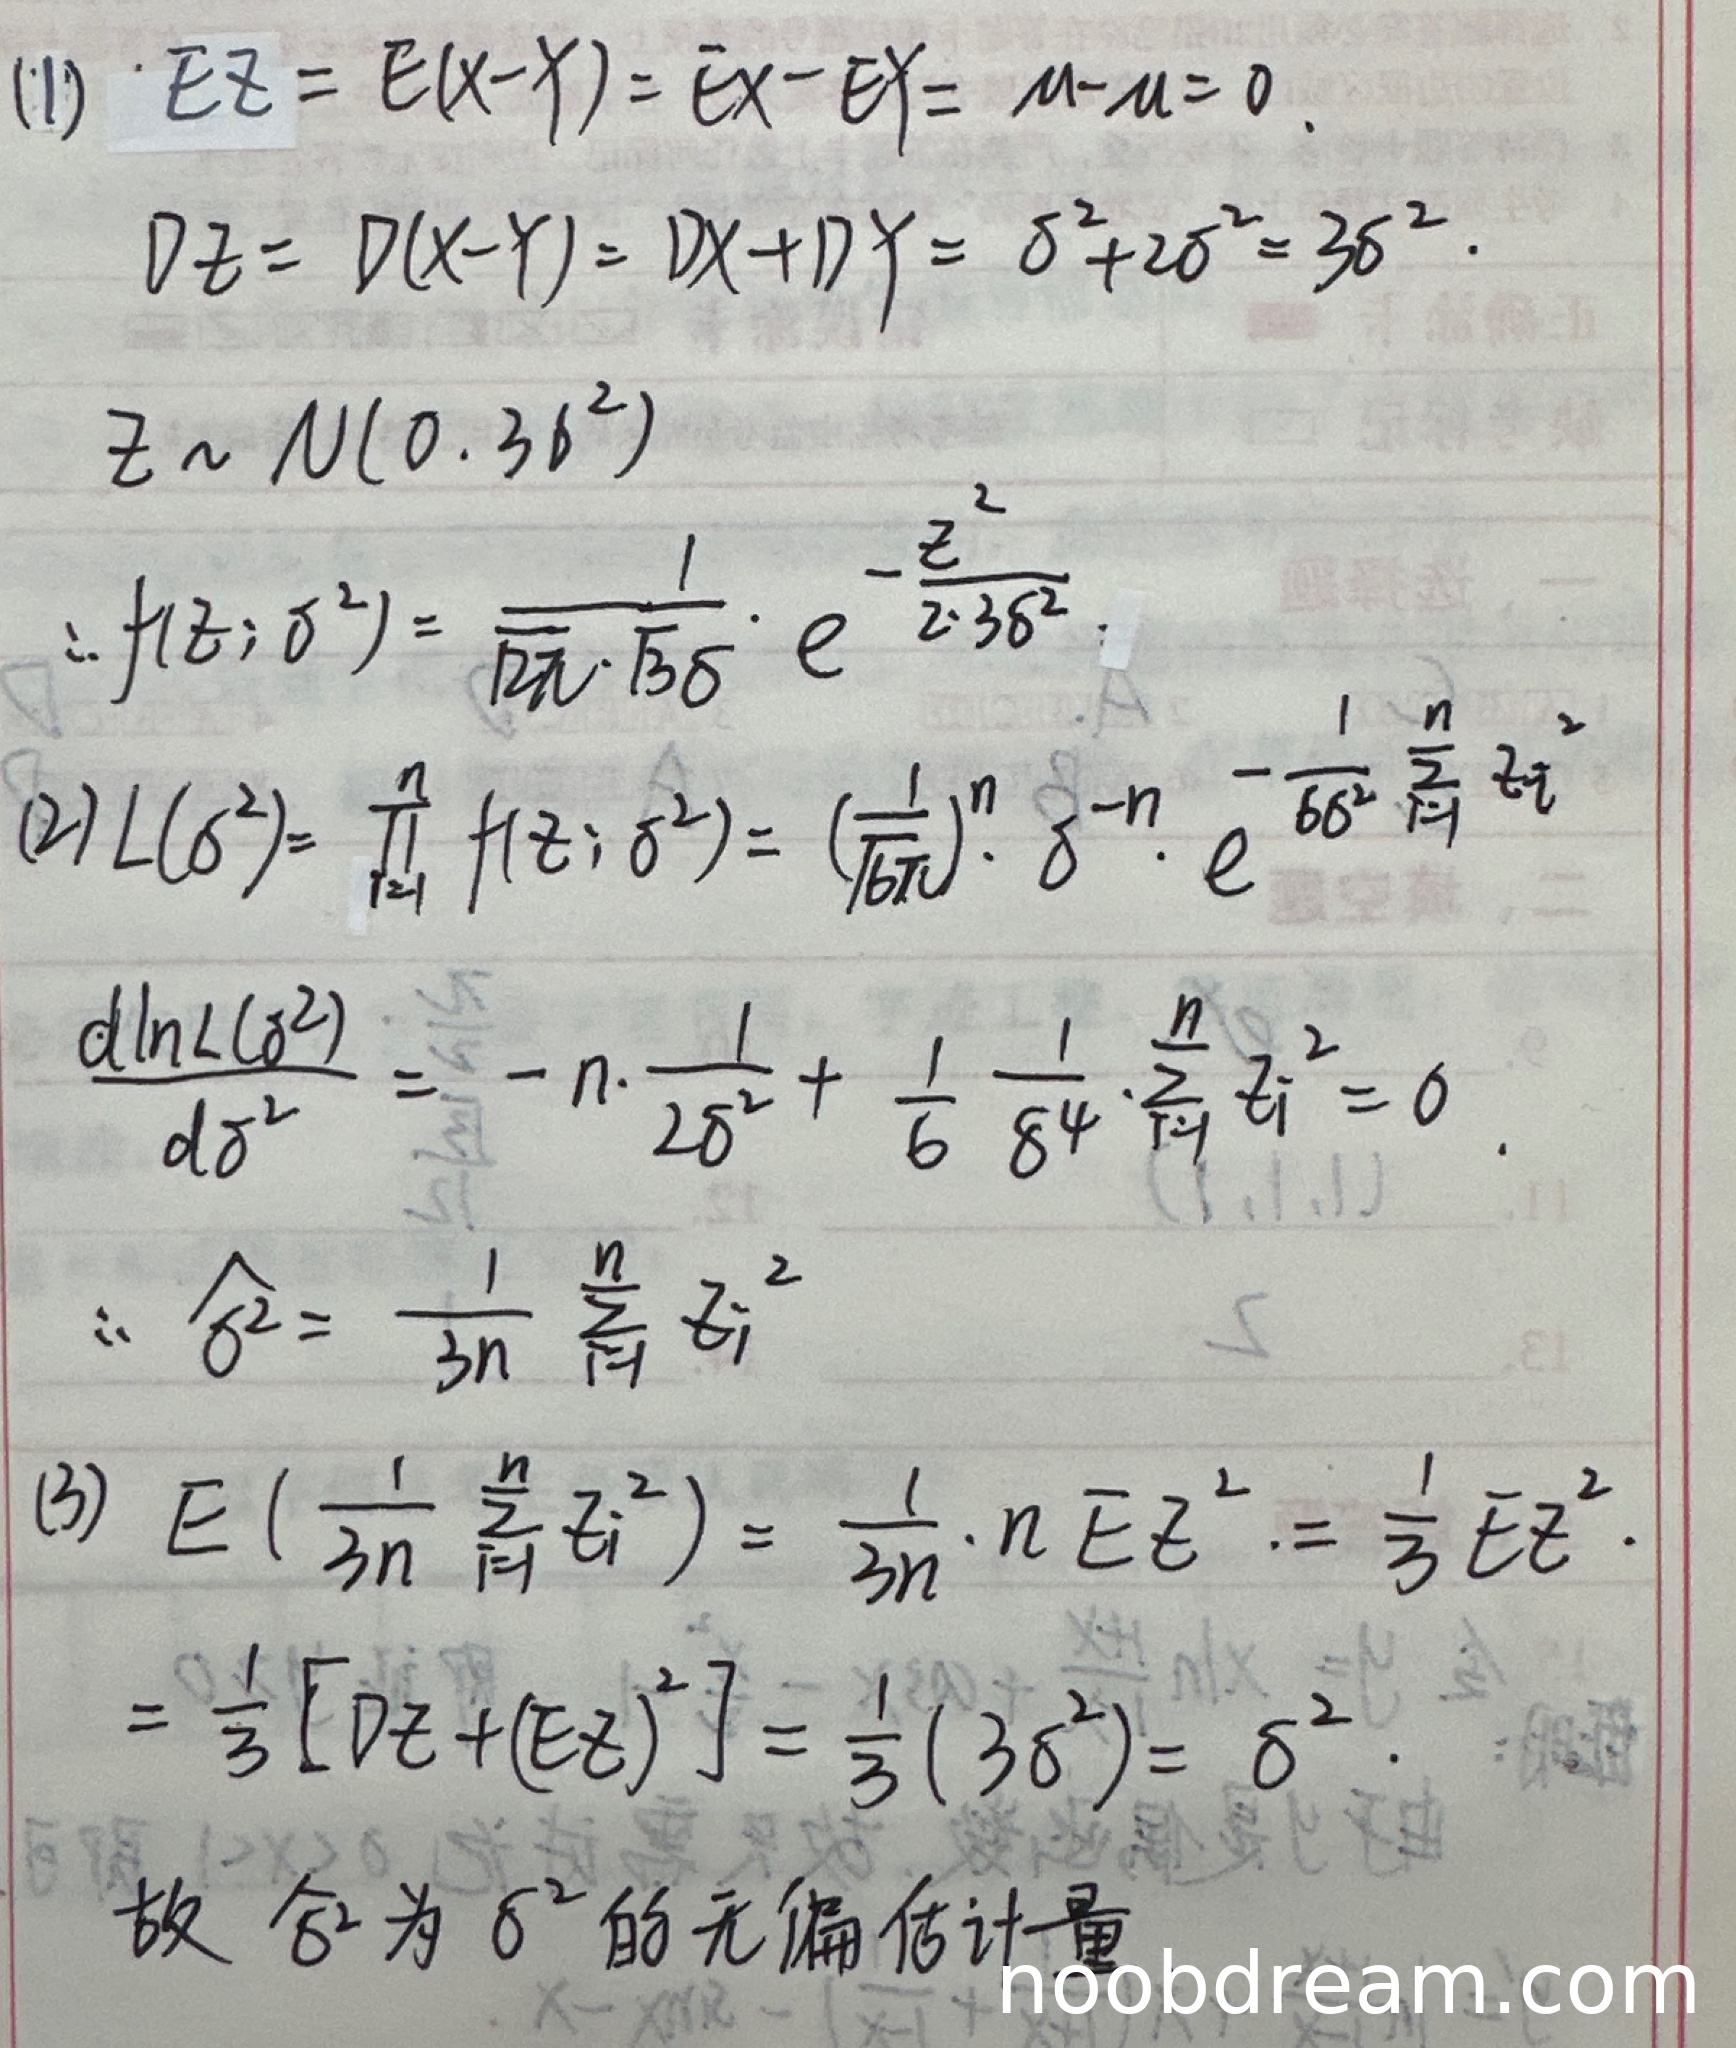 (1) EZ = E(X-Y) = EX - EY = μ - μ = 0.
DZ = D(X-Y) = DX + DY = σ² + 2σ² = 3σ².
Z ~ N(0.3σ²)
∴ f(z; σ²) = 1/(√2π · √3σ) · e^(-z²/(2·3σ²)).
(2) L(σ²) = ∏_{i=1}^{n} f(z; σ²) = (1/√6π)^n · σ^(-n) · e^(-1/(6σ²) ∑_{i=1}^{n} z_i²)
dlnL(σ²)/dσ² = -n · 1/(2σ²) + 1/6 1/σ⁴ · ∑_{i=1}^{n} z_i² = 0.
∴ σ̂² = 1/(3n) ∑_{i=1}^{n} Z_i²
(3) E(1/(3n) ∑_{i=1}^{n} Z_i²) = 1/(3n) · n EZ² · = 1/3 EZ².
= 1/3 [DZ + (EZ)²] = 1/3 (3σ²) = σ².
故 σ̂² 为 σ² 的无偏估计量
noobdream.com